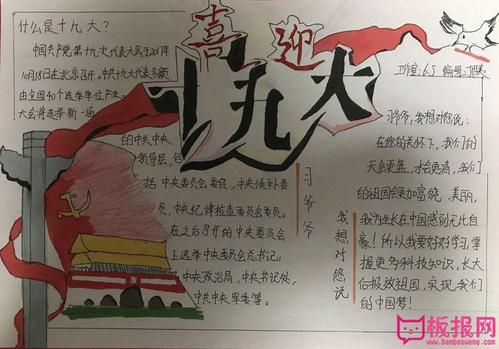 喜迎
十九大
什么是十九大？
中国共产党第十九次代表大会于2017年
10月18日在北京召开。中共十九大代表名额
由全国40个选举单位产生，
大会将选举新一届
的中共中央
领导层，包
括中央委员会委员，中央候补委
员，中央纪律检查委员会委员。
在之后召开的中央委员会
上选举中央委员会总书记，
中央政治局，中央书记处，
中共中央军委等。
习爷爷
我想对您说
习爷爷，我想对您说：
在您的关怀下，我们的
天会更蓝，水会更清，我们
的祖国会更加富饶，美丽，
我为生长在中国感到无比自
豪！所以我要好好学习，掌
握更多科技知识，长大
后报效祖国，实现我们
的中国梦！
板报网
www.banbaowang.com